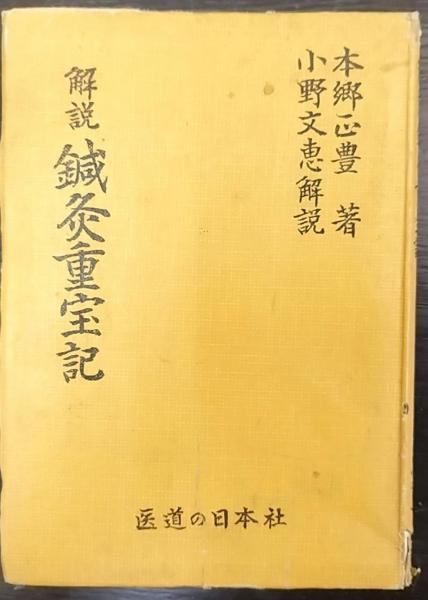 本郷正豊 著
小野文恵解説
解説 鍼灸重宝記
医道の日本社